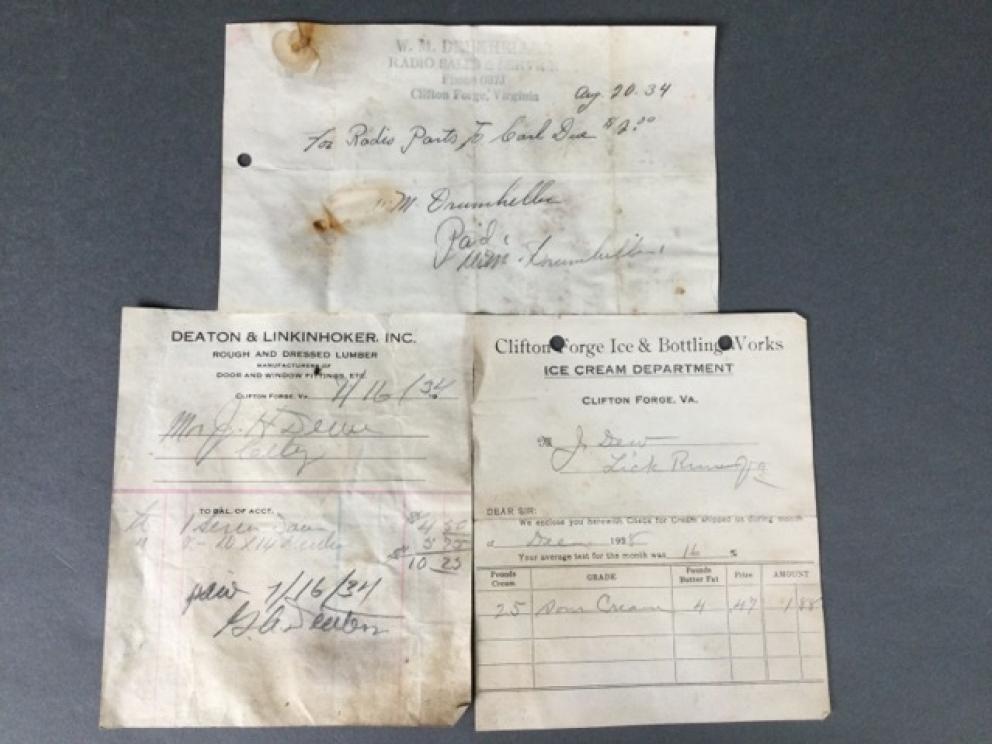 W. M.
RADIO SALES & SERVICE
Phone
Clifton Forge, Virginia
Aug 20. 34
For Radio Parts To Carl Dew $2.00
M. Drumheller
Paid
Drumheller
DEATON & LINKINHOKER, INC.
ROUGH AND DRESSED LUMBER
MANUFACTURERS OF
DOOR AND WINDOW FITTINGS, ETC.
CLIFTON FORGE, VA. 7/16/34
Mr J. H Dew
City
TO BAL. OF ACCT.
1 Door 4 50
10 X 14
10 25
paid 7/16/34
G. A. Deaton
Clifton Forge Ice & Bottling Works
ICE CREAM DEPARTMENT
CLIFTON FORGE, VA.
M J Dew
Lick Run Va
DEAR SIR:
We enclose you herewith Check for Cream shipped us during month
of Dec 1928
Your average test for the month was 16 %
Pounds Cream GRADE Pounds Butter Fat Price AMOUNT
25 Sour Cream 4 .47 1 88